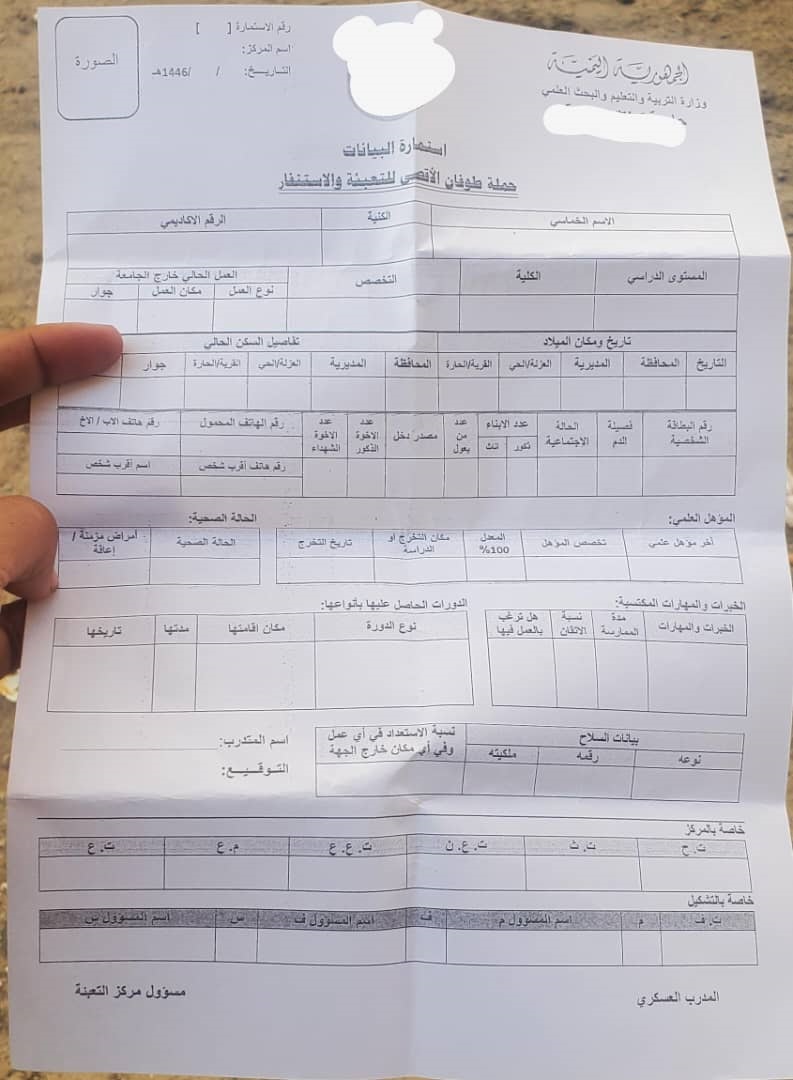 الجمهورية اليمنية
وزارة التربية والتعليم والبحث العلمي
رقم الاستمارة [ ]
اسم المركز:
التاريـــخ: / /1446هـ
الصورة
استمارة البيانات
حملة طوفان الأقصى للتعبئة والاستنفار
الاسم الخماسي الكنية الرقم الاكاديمي
المستوى الدراسي الكلية التخصص العمل الحالي خارج الجامعة
نوع العمل مكان العمل جوار
تاريخ ومكان الميلاد تفاصيل السكن الحالي
التاريخ المحافظة المديرية العزلة/الحي القرية/الحارة المحافظة المديرية العزلة/الحي القرية/الحارة جوار
رقم البطاقة الشخصية فصيلة الدم الحالة الاجتماعية عدد الابناء ذكور انث عدد من يعول مصدر دخل عدد الاخوة الذكور عدد الاخوة الشهداء رقم الهاتف المحمول رقم هاتف الاب / الاخ
رقم هاتف أقرب شخص اسم أقرب شخص
المؤهل العلمي: الحالة الصحية:
أخر مؤهل علمي تخصص المؤهل المعدل 100% مكان التخرج او الدراسة تاريخ التخرج الحالة الصحية أمراض مزمنة / إعاقة
الخبرات والمهارات المكتسبة: الدورات الحاصل عليها بأنواعها:
الخبرات والمهارات مدة الممارسة نسبة الاتقان هل ترغب بالعمل فيها نوع الدورة مكان إقامتها مدتها تاريخها
بيانات السلاح نسبة الاستعداد في أي عمل وفي أي مكان خارج الجهة
نوعه رقمه ملكيته
اسم المتدرب:
التـــوقـــيـــع:
خاصة بالمركز
ت.ح ت.ث ت.ع.ن ت.ع.ع م.ع ت.ع
خاصة بالتشكيل
ت.ف م اسم المسؤول م ف اسم المسؤول ف س اسم المسؤول س
المدرب العسكري مسؤول مركز التعبئة